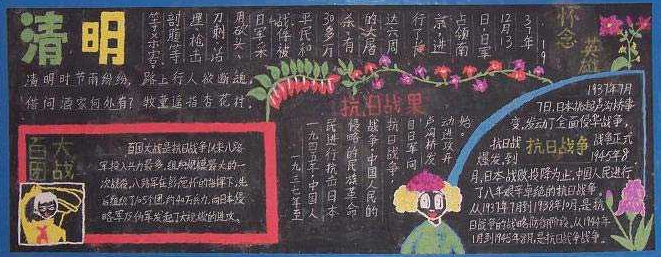 清明
清明时节雨纷纷，路上行人欲断魂。
借问酒家何处有？牧童遥指杏花村。
怀念
英雄
37年
12月
13
日，日军
占领南
京，进
行了长
达六周
的大屠
杀，有
30多万
平民和
战俘被
日军采
用砍头、
刺、活
埋、枪击
剖腹等
百团
大战
百团大战是抗日战争以来八路
军投入兵力最多，组织规模最大的一
次战役，八路军在彭德怀的指挥下，先
后组织了105个团，约40万兵力，向日本侵
略军及伪军发起了大规模的进攻。
抗日战果
始
动进攻开
卢沟桥发
日日军向
抗日战争
战争，中国人民的
侵略的民族革命
民进行抗击日本
一九四五年，中国人
一九三七年至
1937年7月
7日，日本挑起卢沟桥事
变，发动了全面侵华战争。
抗日战争
抗日战 战争正式
爆发到 1945年8
月，日本战败投降为止，中国人民进行
了八年艰辛卓绝的抗日战争。
从1937年7月到1938年10月，是抗
日战争的战略防御阶段。从1944年
1月到1945年8月，是抗日战争